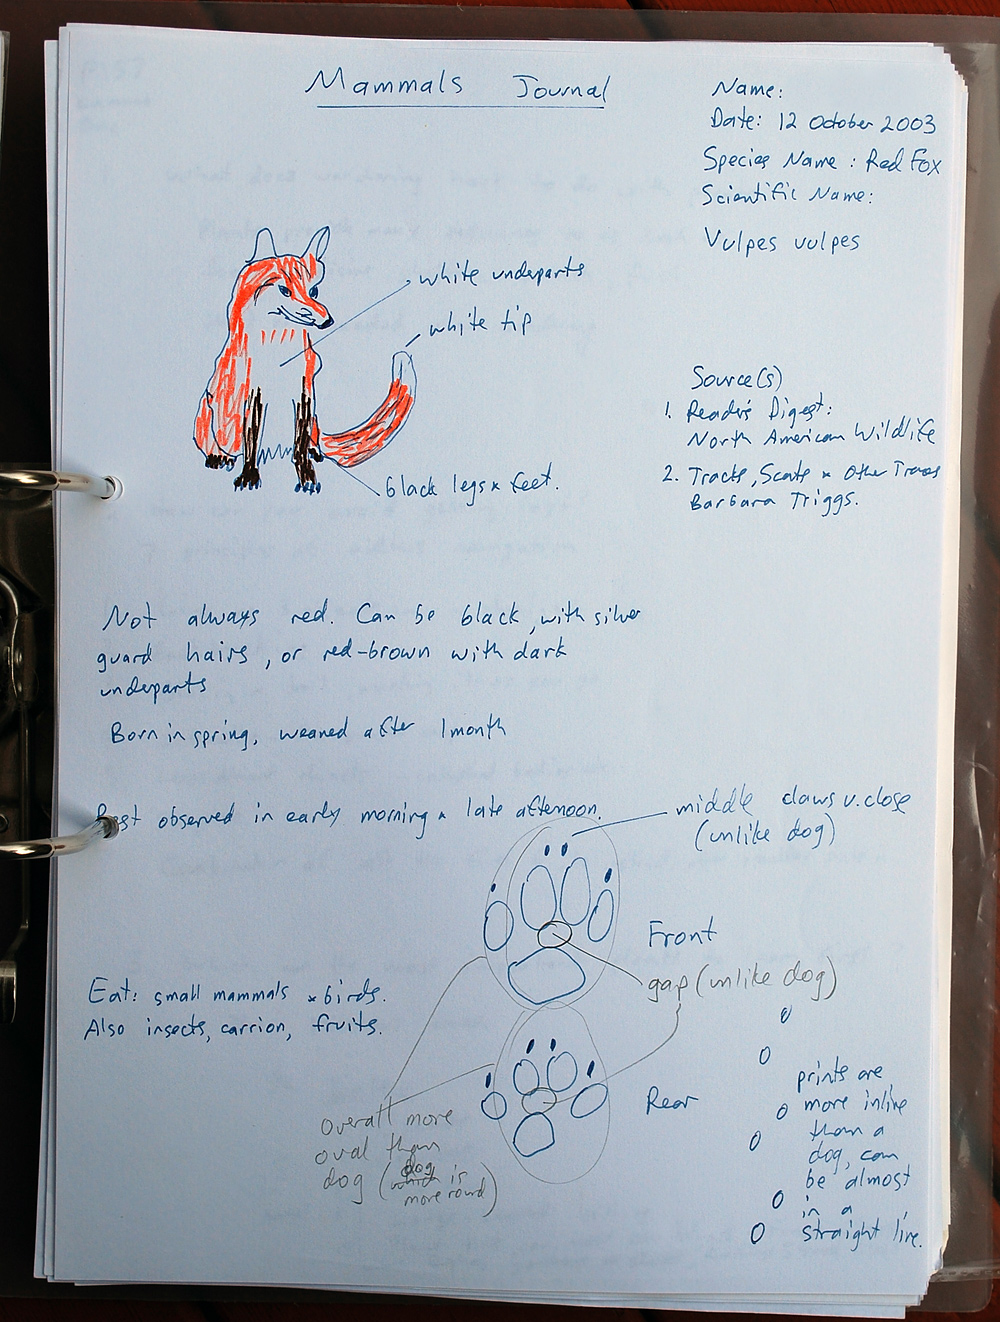 Mammals Journal
Name:
Date: 12 October 2003
Species Name: Red Fox
Scientific Name:
Vulpes vulpes
white underparts
white tip
black legs & feet.
Source(s)
1. Reader's Digest:
North American Wildlife
2. Tracts, Scats & Other Traces
Barbara Triggs.
Not always red. Can be black, with silver
guard hairs, or red-brown with dark
underparts
Born in spring, weaned after 1 month
Best observed in early morning & late afternoon.
middle claws v. close
(unlike dog)
Front
gap (unlike dog)
Eat: small mammals & birds.
Also insects, carrion, fruits.
Rear
Overall more
oval than
dog (dog is
more round)
prints are
more inline
than a
dog, can
be almost
in a
straight line.